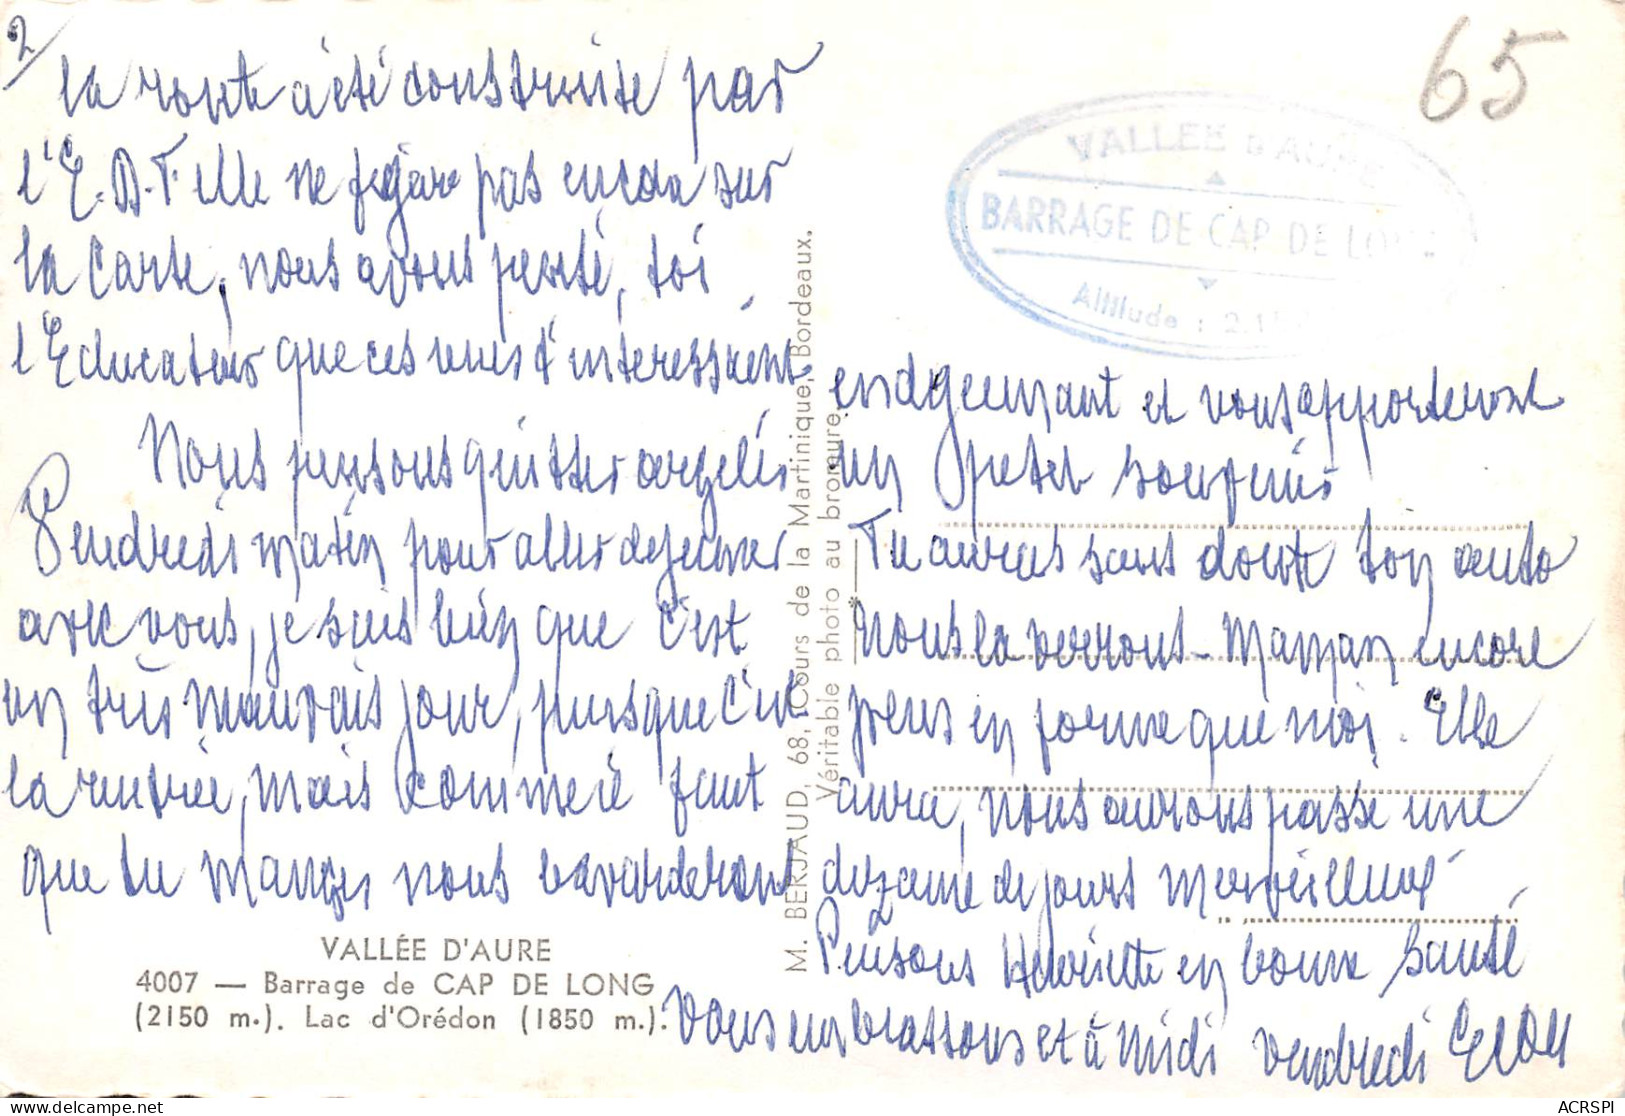 2
la route a été construite par
l'E.D.F. elle ne figure pas encore sur
la carte, nous avons pensé, toi
l'Educateur que ces vues t'intéressaient
Nous pensons quitter argelès
Vendredi matin pour aller dejeuner
avec vous, je sais bien que c'est
un très mauvais jour, puisque c'est
la rentrée, mais comme il faut
que tu manges nous bavarderons
VALLÉE D'AURE
4007 — Barrage de CAP DE LONG
(2150 m.). Lac d'Orédon (1850 m.).
M. BERJAUD, 68, Cours de la Martinique, Bordeaux.
Véritable photo au bromure.
65
VALLEE D'AURE
BARRAGE DE CAP DE LONG
Altitude : 2.1
en dejeunant et vous apporterons
un petit souvenir
Tu auras sans doute ton auto
nous la verrons - Maman encore
plus en forme que moi. Elle
aura, nous aurons passé une
dizaine de jours merveilleux
Pensons Henriette en bonne santé
Vous embrassons et à midi vendredi
ACRSPI